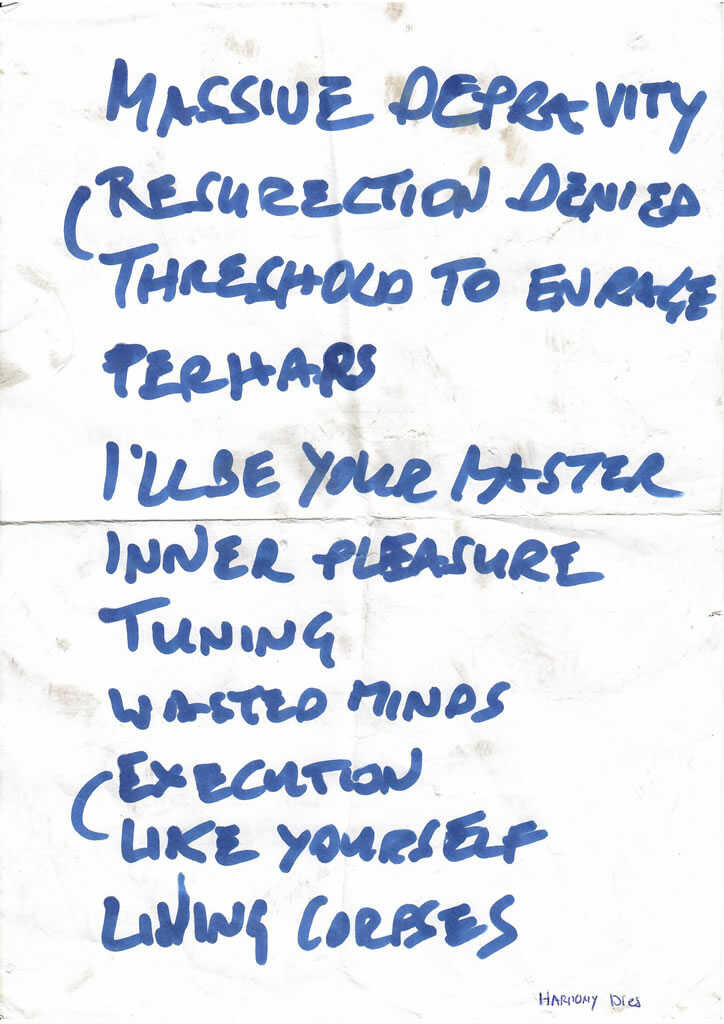 MASSIVE DEPRAVITY
RESURECTION DENIED
THRESHOLD TO ENRAGE
PERHAPS
I'LL BE YOUR MASTER
INNER PLEASURE
TUNING
WASTED MINDS
EXECUTION
LIKE YOURSELF
LIVING CORPSES
HARMONY DIES